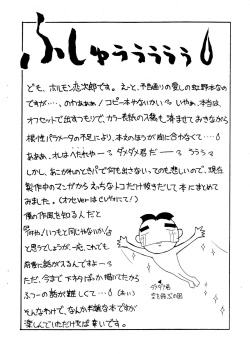 ふしゅぅぅぅぅぅ
ども、ホルモン恋次郎です。えーと、予告通りの愛しの虹野本なの
ですが…、のわああぁ!コピー本やないかい? いやぁ、本当は、
オフセットで出すつもりで、カラー表紙の入稿も済ませてみきながら
根性パラメータの不足により、本文のほうが間に合わなくて…
あああ、オレはへたれやー? ダメダメ君だー? うぅぅ?
しかし、あこがれのときパで何も出さないってのも悲しいので、現在
製作中のマンガからえっちなトコだけ抜きだして本にまとめて
みました。(オフセVerはCレヴォにて!)
僕の作風を知る人だと
「何や!いつもと同じやないか」
と思うでしょうが、一応、これでも
前後に話がスるんですよー?
ただ、今まで下ネタばっか描いてたから
ふつーの話が難しくて…(おい)
そんなわけで、なんか半端な本ですが
楽しんでいただければ幸いです。
ダメダメ君